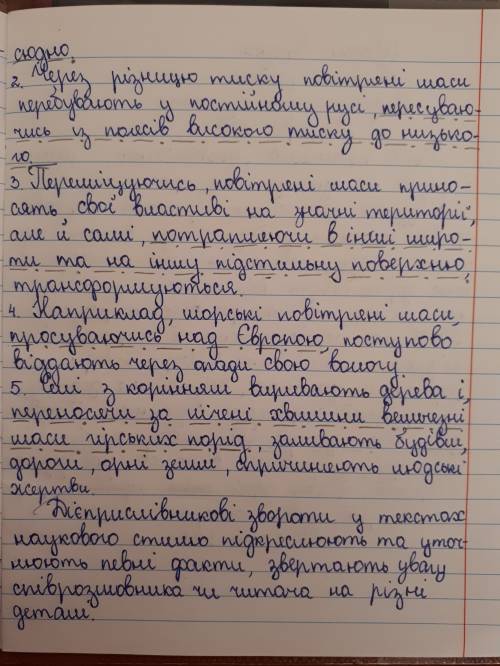 сюдно.
2. Через різницю тиску повітрені маси
перебувають у постійному русі, пересуваю-
чись із полєсів високого тиску до низько-
го.
3. Переміщуючись, повітрені маси прино-
сять свої властиві на значні території,
але й самі, потрапляючи в інші широ-
ти та на іншу підстильну поверхню,
трансформуються.
4. Наприклад, морські повітрені маси,
просуваючись над Європою, поступово
віддають через опади свою вологу.
5. Селі з корінням виривають дерева і,
переносячи за лічені хвилини величезні
маси гірських порід, заливають будівлі,
дороги, орні землі, спричинюють людські
жертви.
Дієприслівникові звороти у текстах
наукового стилю підкреслюють та уточ-
нюють певні факти, звертають увагу
співрозмовника чи читача на різні
деталі.